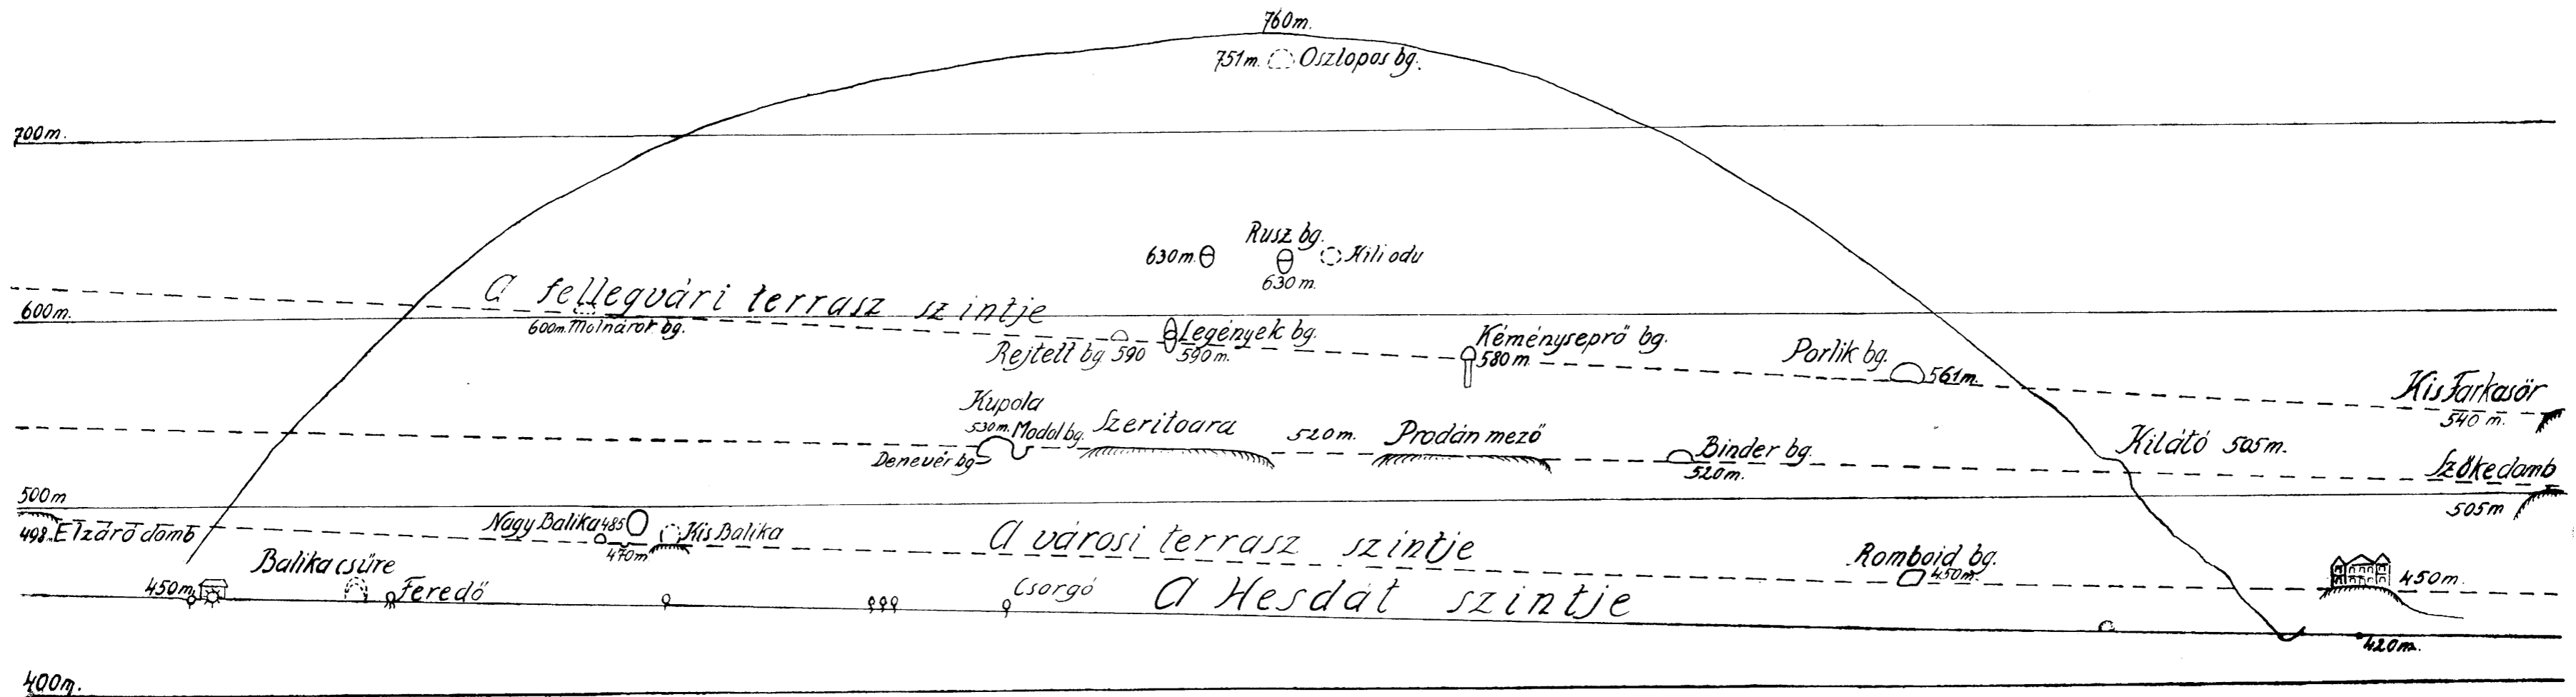 760m.
751m. Oszlopos bg.
700m.
Rusz bg.
630m. Hili odu
630m.
A fellegvári terrasz szintje
600m.
600m. Molnárok bg.
Legények bg.
Rejtett bg 590
590m.
Kéményseprő bg.
580m
Porlik bg.
561m.
Kis Farkasőr
540 m.
Kupola
530m. Modol bg. Szeritoara
520m.
Prodán mező
Denevér bg
Binder bg.
520m.
Kilátó 505m.
Szőkedomb
505m
500m
498. Elzáró domb
Nagy Balika 485
470m
Kis Balika
A városi terrasz szintje
Romboid bg.
450m.
450m.
Balika csűre
450m.
Feredő
Csorgó
A Hesdát szintje
420m.
400m.